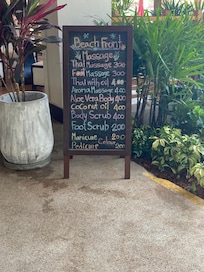 Beach Front
Massage
Thai Massage 300
Foot Massage 300
Thai with oil 400
Aroma Massage 400
Aloe Vera Body 400
Coconut oil 400
Body Scrub 400
Foot Scrub 200
Manicure 200
Pedicure Colour 200